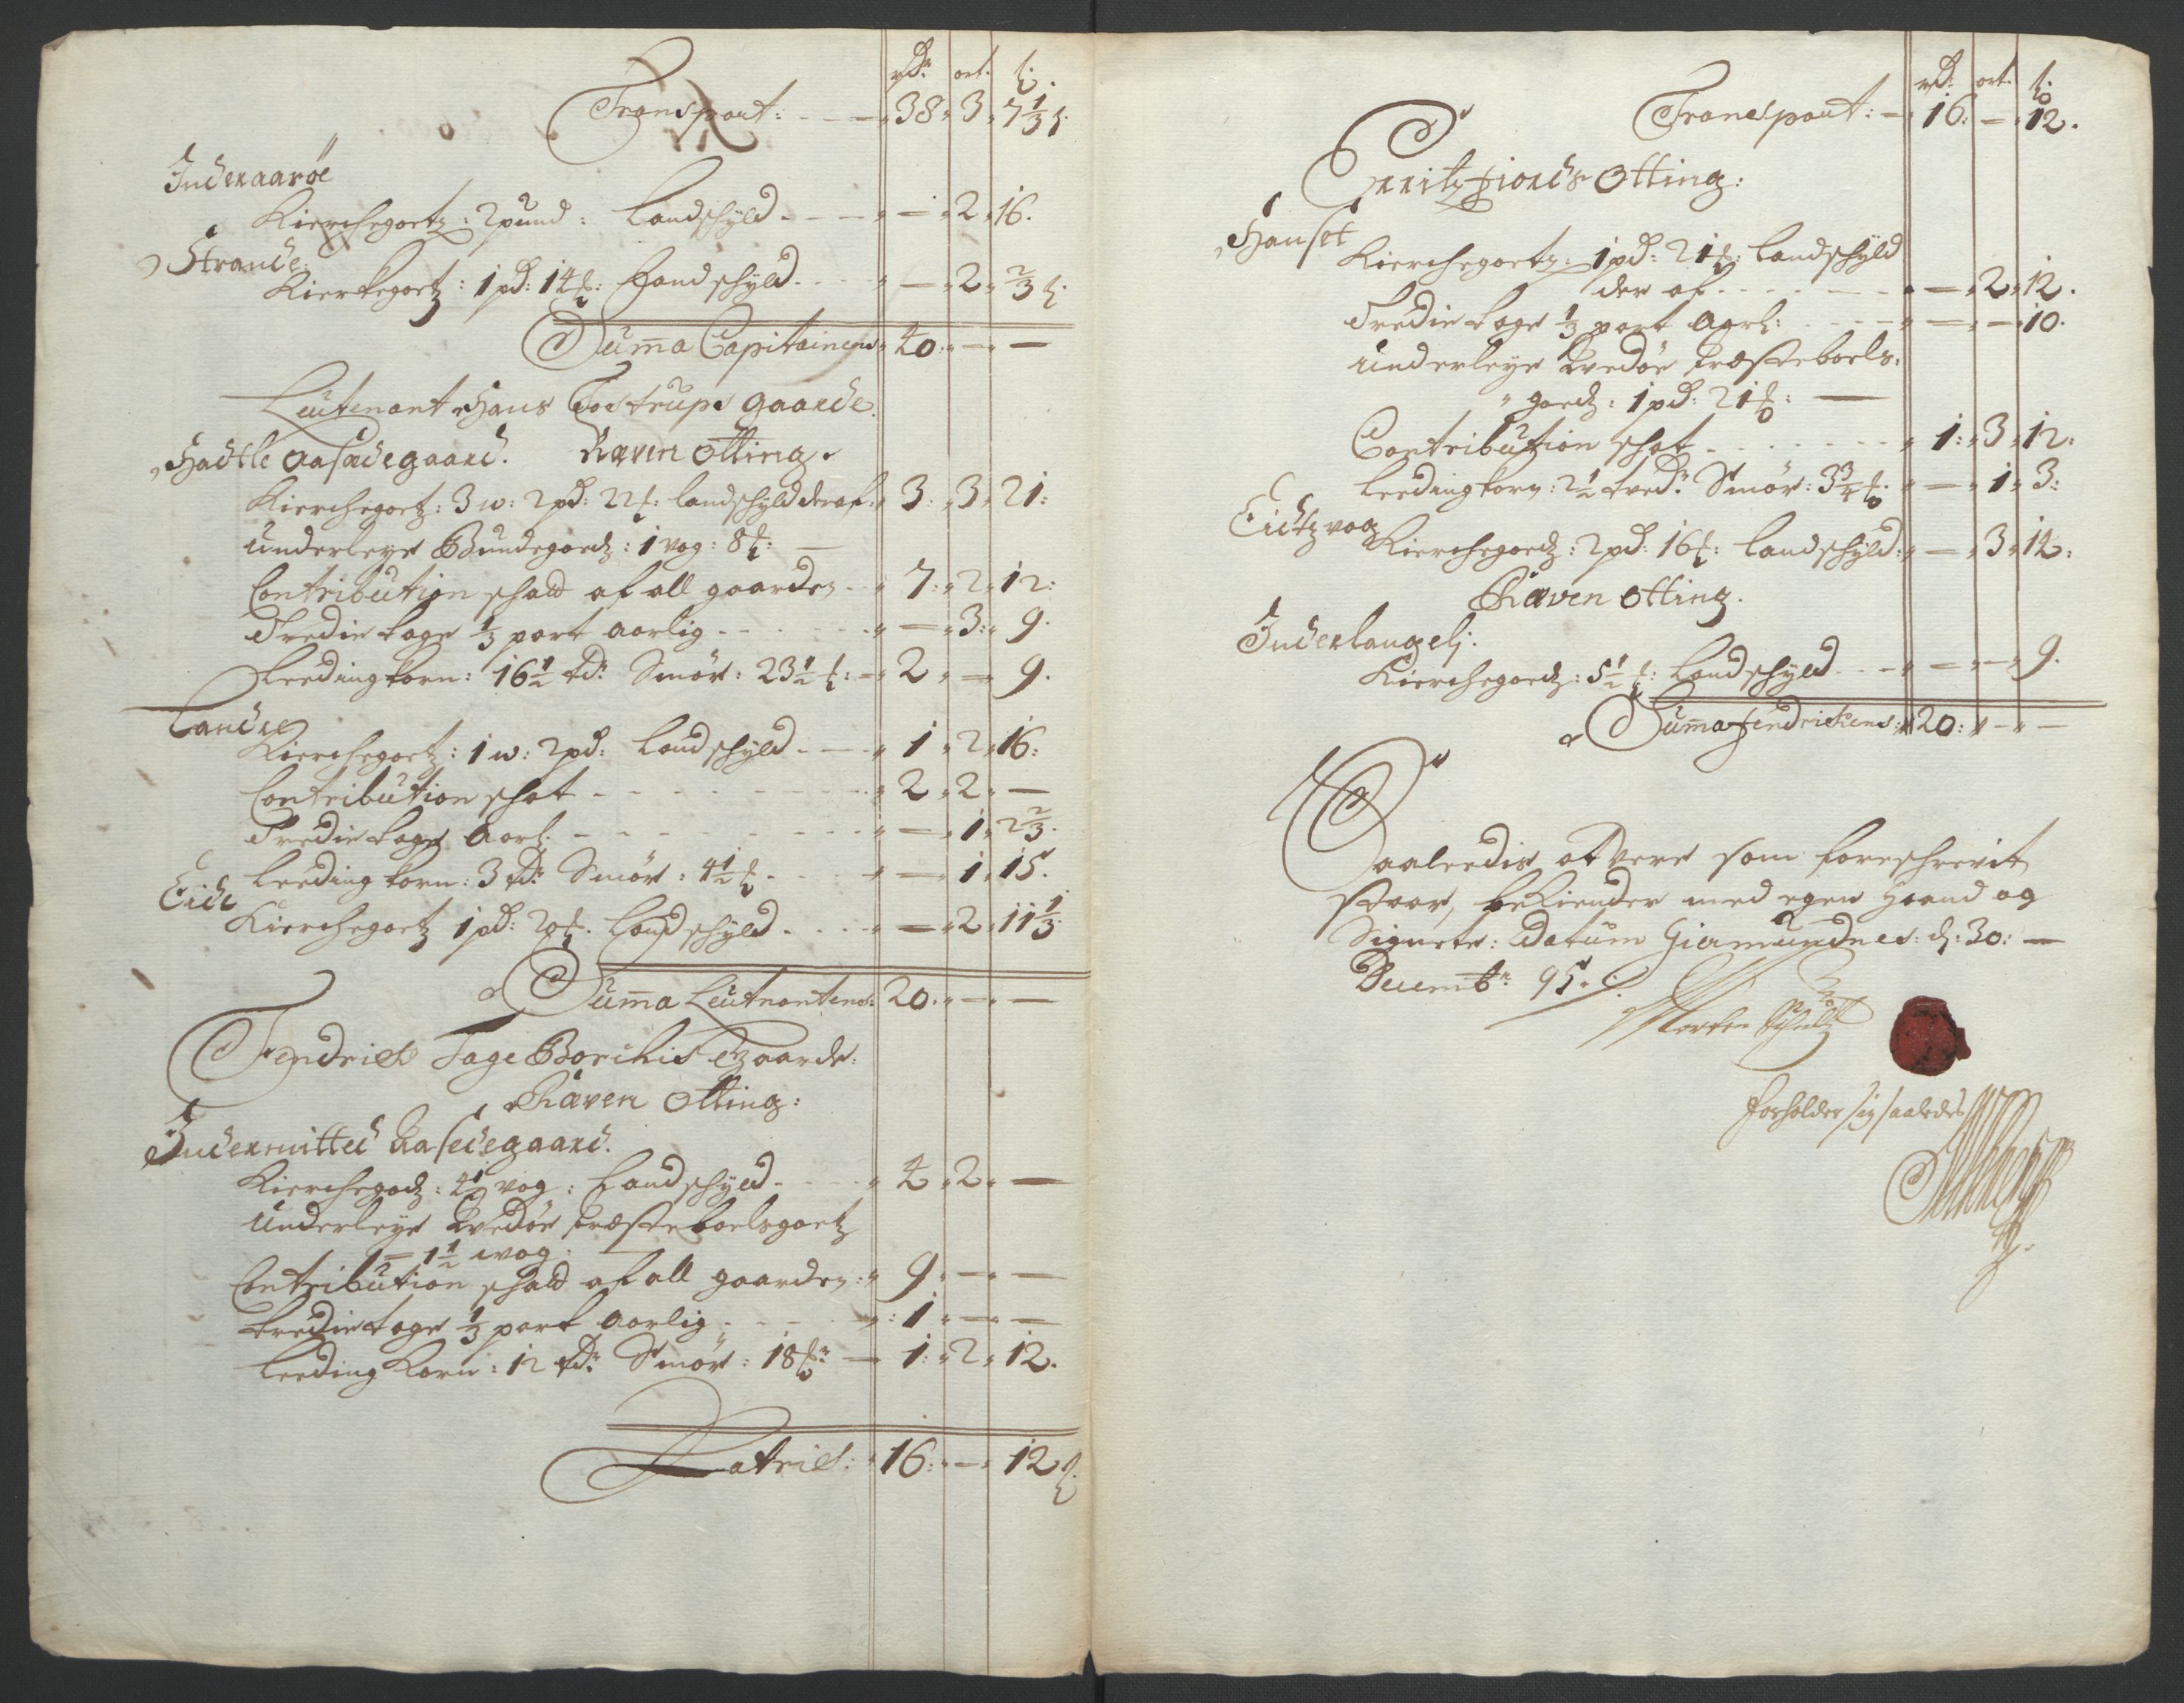 rdr. ort. ß.
Transport: - - - 38 „ 3 „ 7 1/3 ß.
Inderaarøe
Kierchegoetz: 2 pund: Landschÿld - - - „ — „ 2 „ 16.
Strande:
Kierkegoetz: 1 pd: 14 ₰: Landschÿld - - - „ — „ 2 „ 2/3 ß.
Summa Capitainens „ 40: „ — „ —
Leutenant Hans Tostrups gaarde.
Hadtle Aasædegaard. Ræven Otting.
Kierchegoetz: 3 w: 2 pd: 22 ₰: landschÿld deraf „ 3: „ 3 „ 21:
Underleye Bundegoedz: 1 vog: 8 ₰: —
Contribution schatt af all gaarden - „ 7: „ 2 „ 12:
Tredie tage 1/3 part aarlig - - - „ — „ 3: „ 9.
Leedingkorn: 16 1/2 td: Smør: 23 1/2 ₰: - 2 „ — „ 9.
Lande
Kierchegoetz: 1 w: 2 pd: Landschÿld - - - „ 1 „ 2 „ 16:
Contribution schat - - - „ 2 „ 2 „ —
Tredie tage Aarl. - - - „ — „ 1 „ 2 2/3.
Leeding korn: 3 td: Smør: 4 1/2 ₰ - - „ — „ 1 „ 15.
Eide
Kierchegoetz 1 pd: 20 ₰. Landschÿld - - - „ — „ 2 „ 11 1/3.
Summa Leutnantens: 20. „ — „ —
Fendrich Tage Borchis gaarde:
Ræven Otting:
Indermitted Aasedegaard.
Kierchegodz: 4 1/2 vog: Landschÿld - - - „ 4 „ 2 „ —
Underleye Qvedøe Præsteboelsgoetz
= 1 1/2 wog:
Contribution schatt af all gaarden: „ 9. „ — „ —
tredie tage 1/3 part aarlig - - - „ : 1 „ — „ —
Leeding korn: 12 td: Smør: 18 ₰: — 1: „ 2 „ 12.
Latris: „ 16: „ — „ 12 ß.
rd: ort. ß.
Transport: — „ 16: „ — „ 12.
Otting:
Hanset
Kierchegoetz: 1 pd: 21 ₰: Landschÿld
der af - - - „ — „ 2 „ 12.
Tredie tage 1/3 part Aarl: - - - „ — „ — „ 10.
Underleye Qvedøe Præsteboels:
„ goedz: 1 pd: 21 ₰: —
Contribution schat - - - „ 1: „ 3 „ 12:
Leedingkorn: 2 1/2 td: Smør: 3 3/4 ₰ „ — „ 1 „ 3:
Eidtzvog
Kierchegoedz: 2 pd: 16 ₰: Landschÿld: „ — „ 3 „ 14:
Ræven Otting.
Inderlangeli:
Kierchegoedz: 5 1/2 ₰: Landschÿld - - - „ — „ — „ 9.
Summa Fendrichens: „ 20: „ — „ —
Saaleedis at vere som foreschrevit
staar, bekiender med egen Haand og
Signete: Datum Giermundnes: d: 30: —
Decembr: 95.
Morten Schultz
forholder sig saaledis